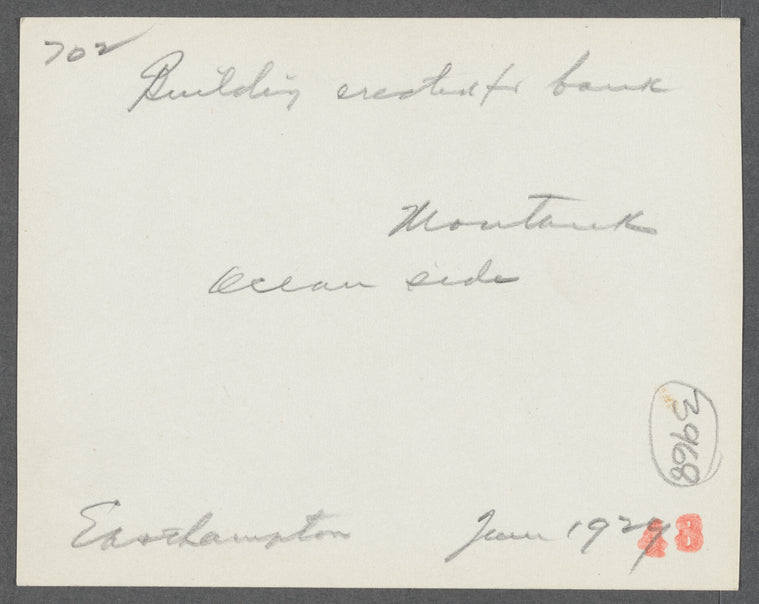 702
Building erected for bank
Montauk
Ocean side
3968
Easthampton June 1929